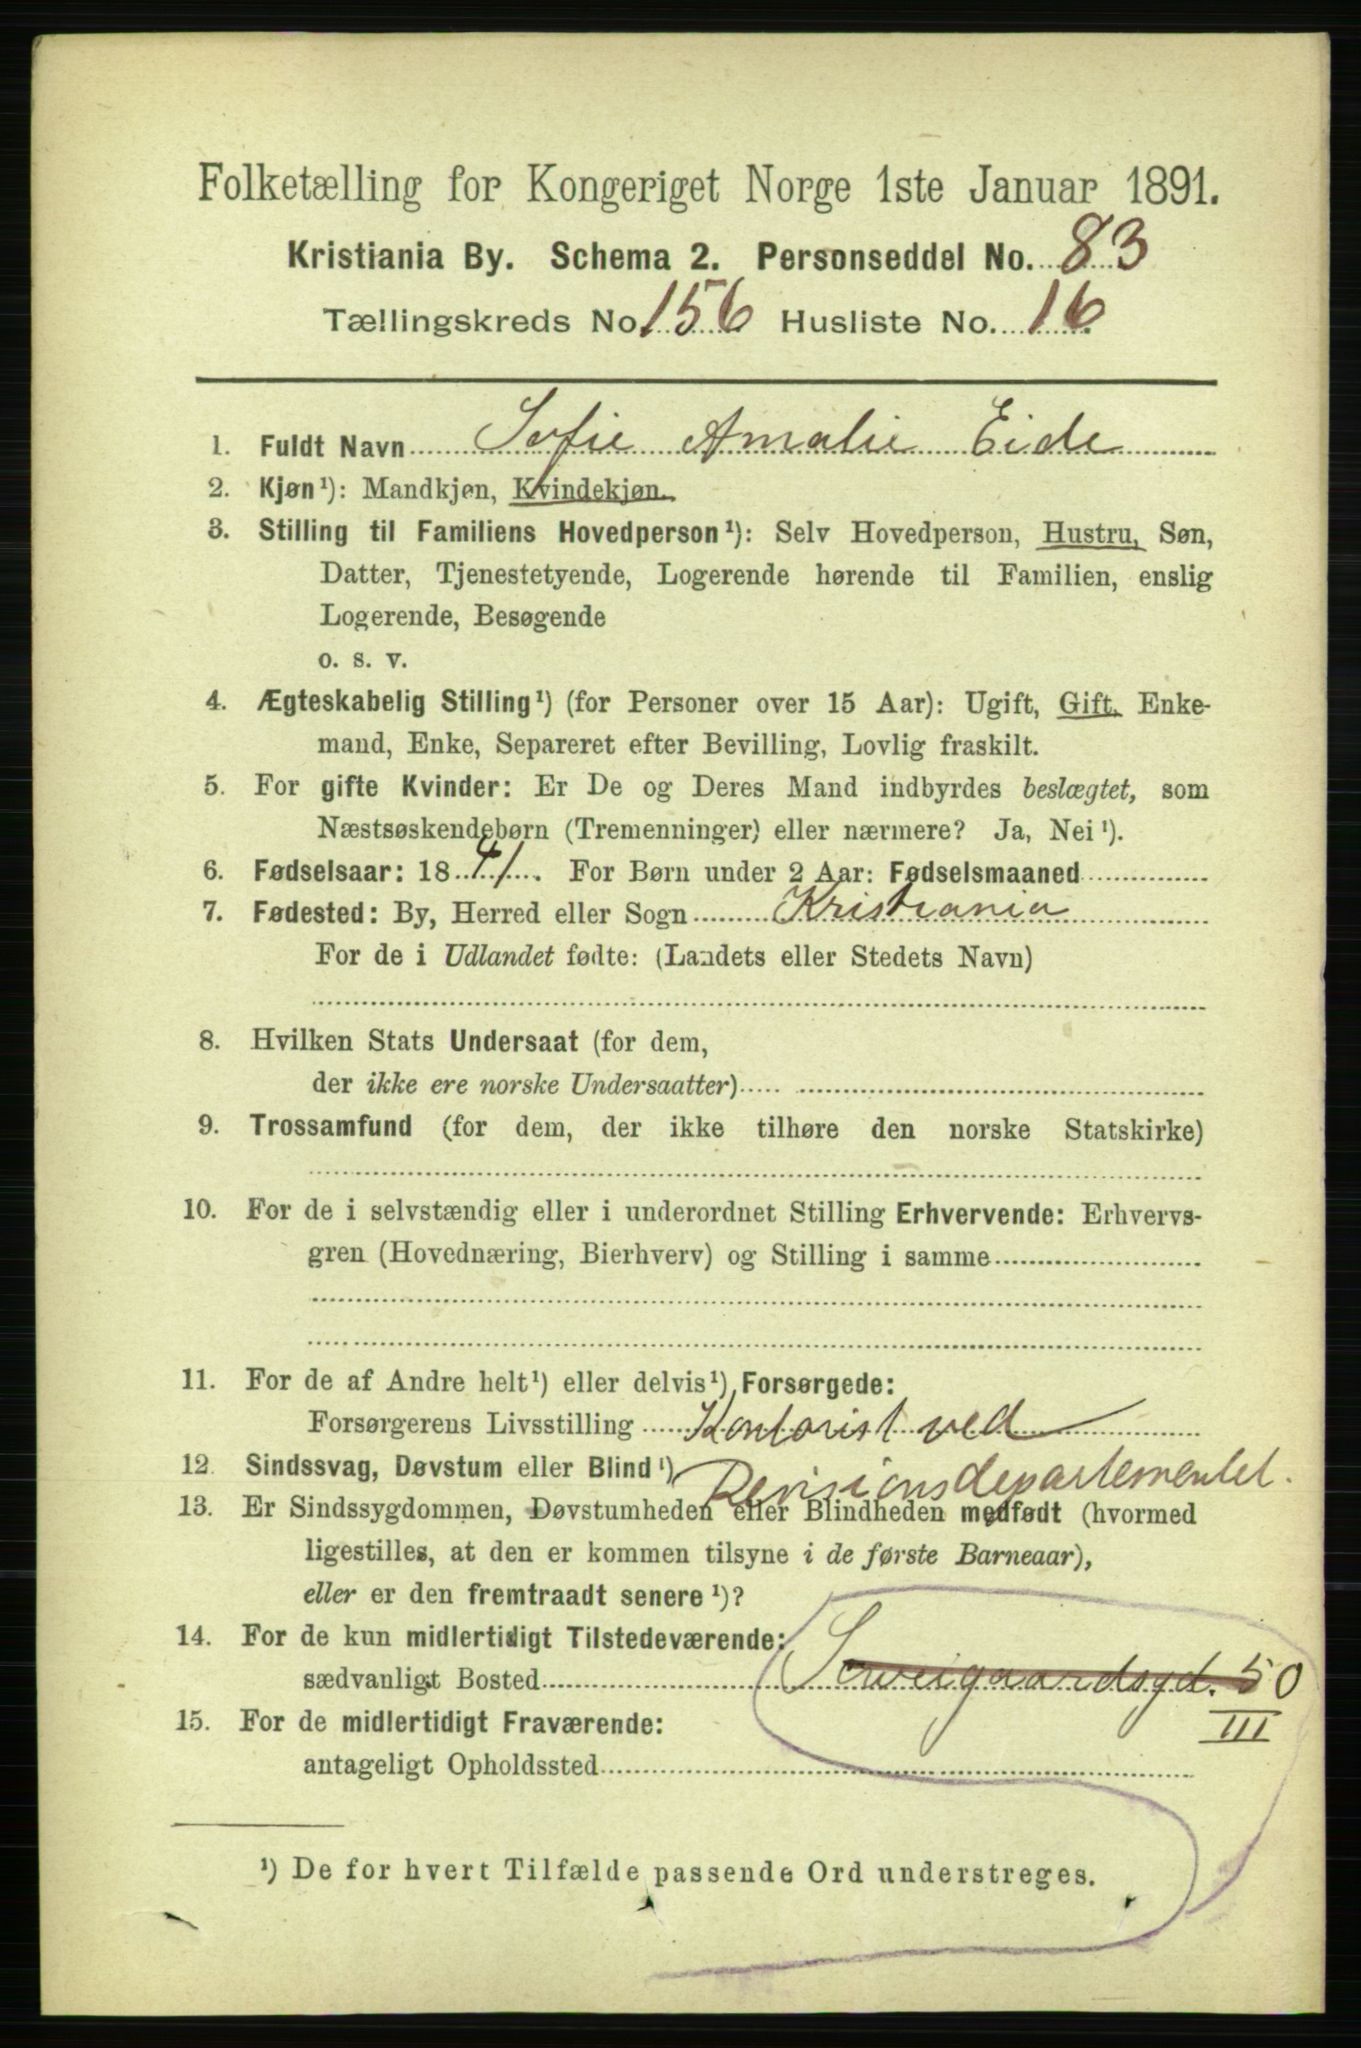 Folketælling for Kongeriget Norge 1ste Januar 1891.
Kristiania By. Schema 2. Personseddel No. 83
Tællingskreds No. 156 Husliste No. 16
1. Fuldt Navn Sofie Amalie Eide
2. Kjøn¹): Mandkjøn, Kvindekjøn.
3. Stilling til Familiens Hovedperson¹): Selv Hovedperson, Hustru, Søn,
Datter, Tjenestetyende, Logerende hørende til Familien, enslig
Logerende, Besøgende
o. s. v.
4. Ægteskabelig Stilling¹) (for Personer over 15 Aar): Ugift, Gift, Enke-
mand, Enke, Separeret efter Bevilling, Lovlig fraskilt.
5. For gifte Kvinder: Er De og Deres Mand indbyrdes beslægtet, som
Næstsøskendebørn (Tremenninger) eller nærmere? Ja, Nei¹).
6. Fødselsaar: 1841. For Børn under 2 Aar: Fødselsmaaned
7. Fødested: By, Herred eller Sogn Kristiania
For de i Udlandet fødte: (Landets eller Stedets Navn)
8. Hvilken Stats Undersaat (for dem,
der ikke ere norske Undersaatter)
9. Trossamfund (for dem, der ikke tilhøre den norske Statskirke)
10. For de i selvstændig eller i underordnet Stilling Erhvervende: Erhvervs-
gren (Hovednæring, Bierhverv) og Stilling i samme
11. For de af Andre helt¹) eller delvis¹) Forsørgede:
Forsørgerens Livsstilling Kontorist ved
12. Sindssvag, Døvstum eller Blind¹) Revisionsdepartementet.
13. Er Sindssygdommen, Døvstumheden eller Blindheden medfødt (hvormed
ligestilles, at den er kommen tilsyne i de første Barneaar),
eller er den fremtraadt senere¹)?
14. For de kun midlertidigt Tilstedeværende:
sædvanligt Bosted Sweigaardsgd. 50
III
15. For de midlertidigt Fraværende:
antageligt Opholdssted
¹) De for hvert Tilfælde passende Ord understreges.